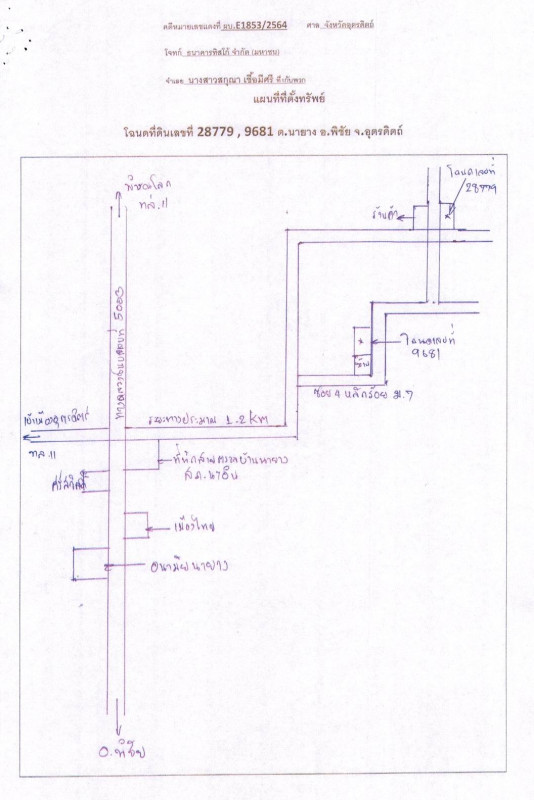 คดีหมายเลขแดงที่ ผบ.E1853/2564 ศาล จังหวัดอุตรดิตถ์
โจทก์ ธนาคารทิสโก้ จำกัด (มหาชน)
จำเลย นางสาวสกุณา เชื้อมีศรี ที่กับพวก
แผนที่ที่ตั้งทรัพย์
โฉนดที่ดินเลขที่ 28779 , 9681 ต.นายาง อ.พิชัย จ.อุตรดิตถ์
พิษณุโลก
ทล.11
โฉนดเลขที่
28779
ร้านค้า
โฉนดเลขที่
9681
ซอย 4 หลักร้อย ม.7
ระยะทางประมาณ 1.2 km
ทล.11
ที่พักสายตรวจบ้านนายาง
เมืองไทย
อนามัยนายาง
อ.พิชัย